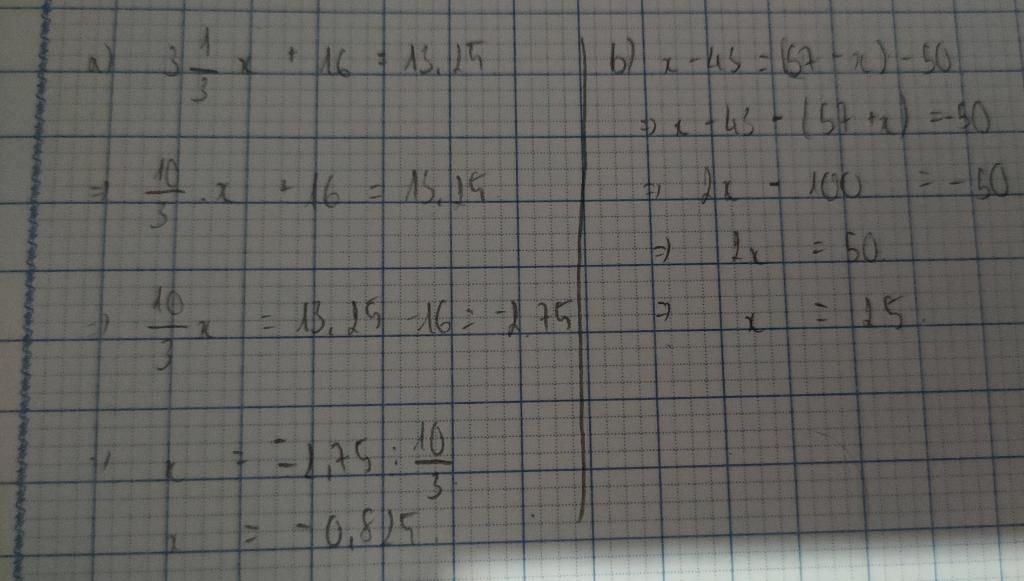 a) 3 1/3 x + 16 = 13,25
⇒ 10/3 . x + 16 = 13,25
⇒ 10/3 x = 13,25 - 16 = -2,75
⇒ x = -2,75 : 10/3
x = -0,825
b) x - 43 = (57 - x) - 50
⇒ x - 43 - (57 + x) = -50
⇒ 2x - 100 = -50
⇒ 2x = 50
⇒ x = 25